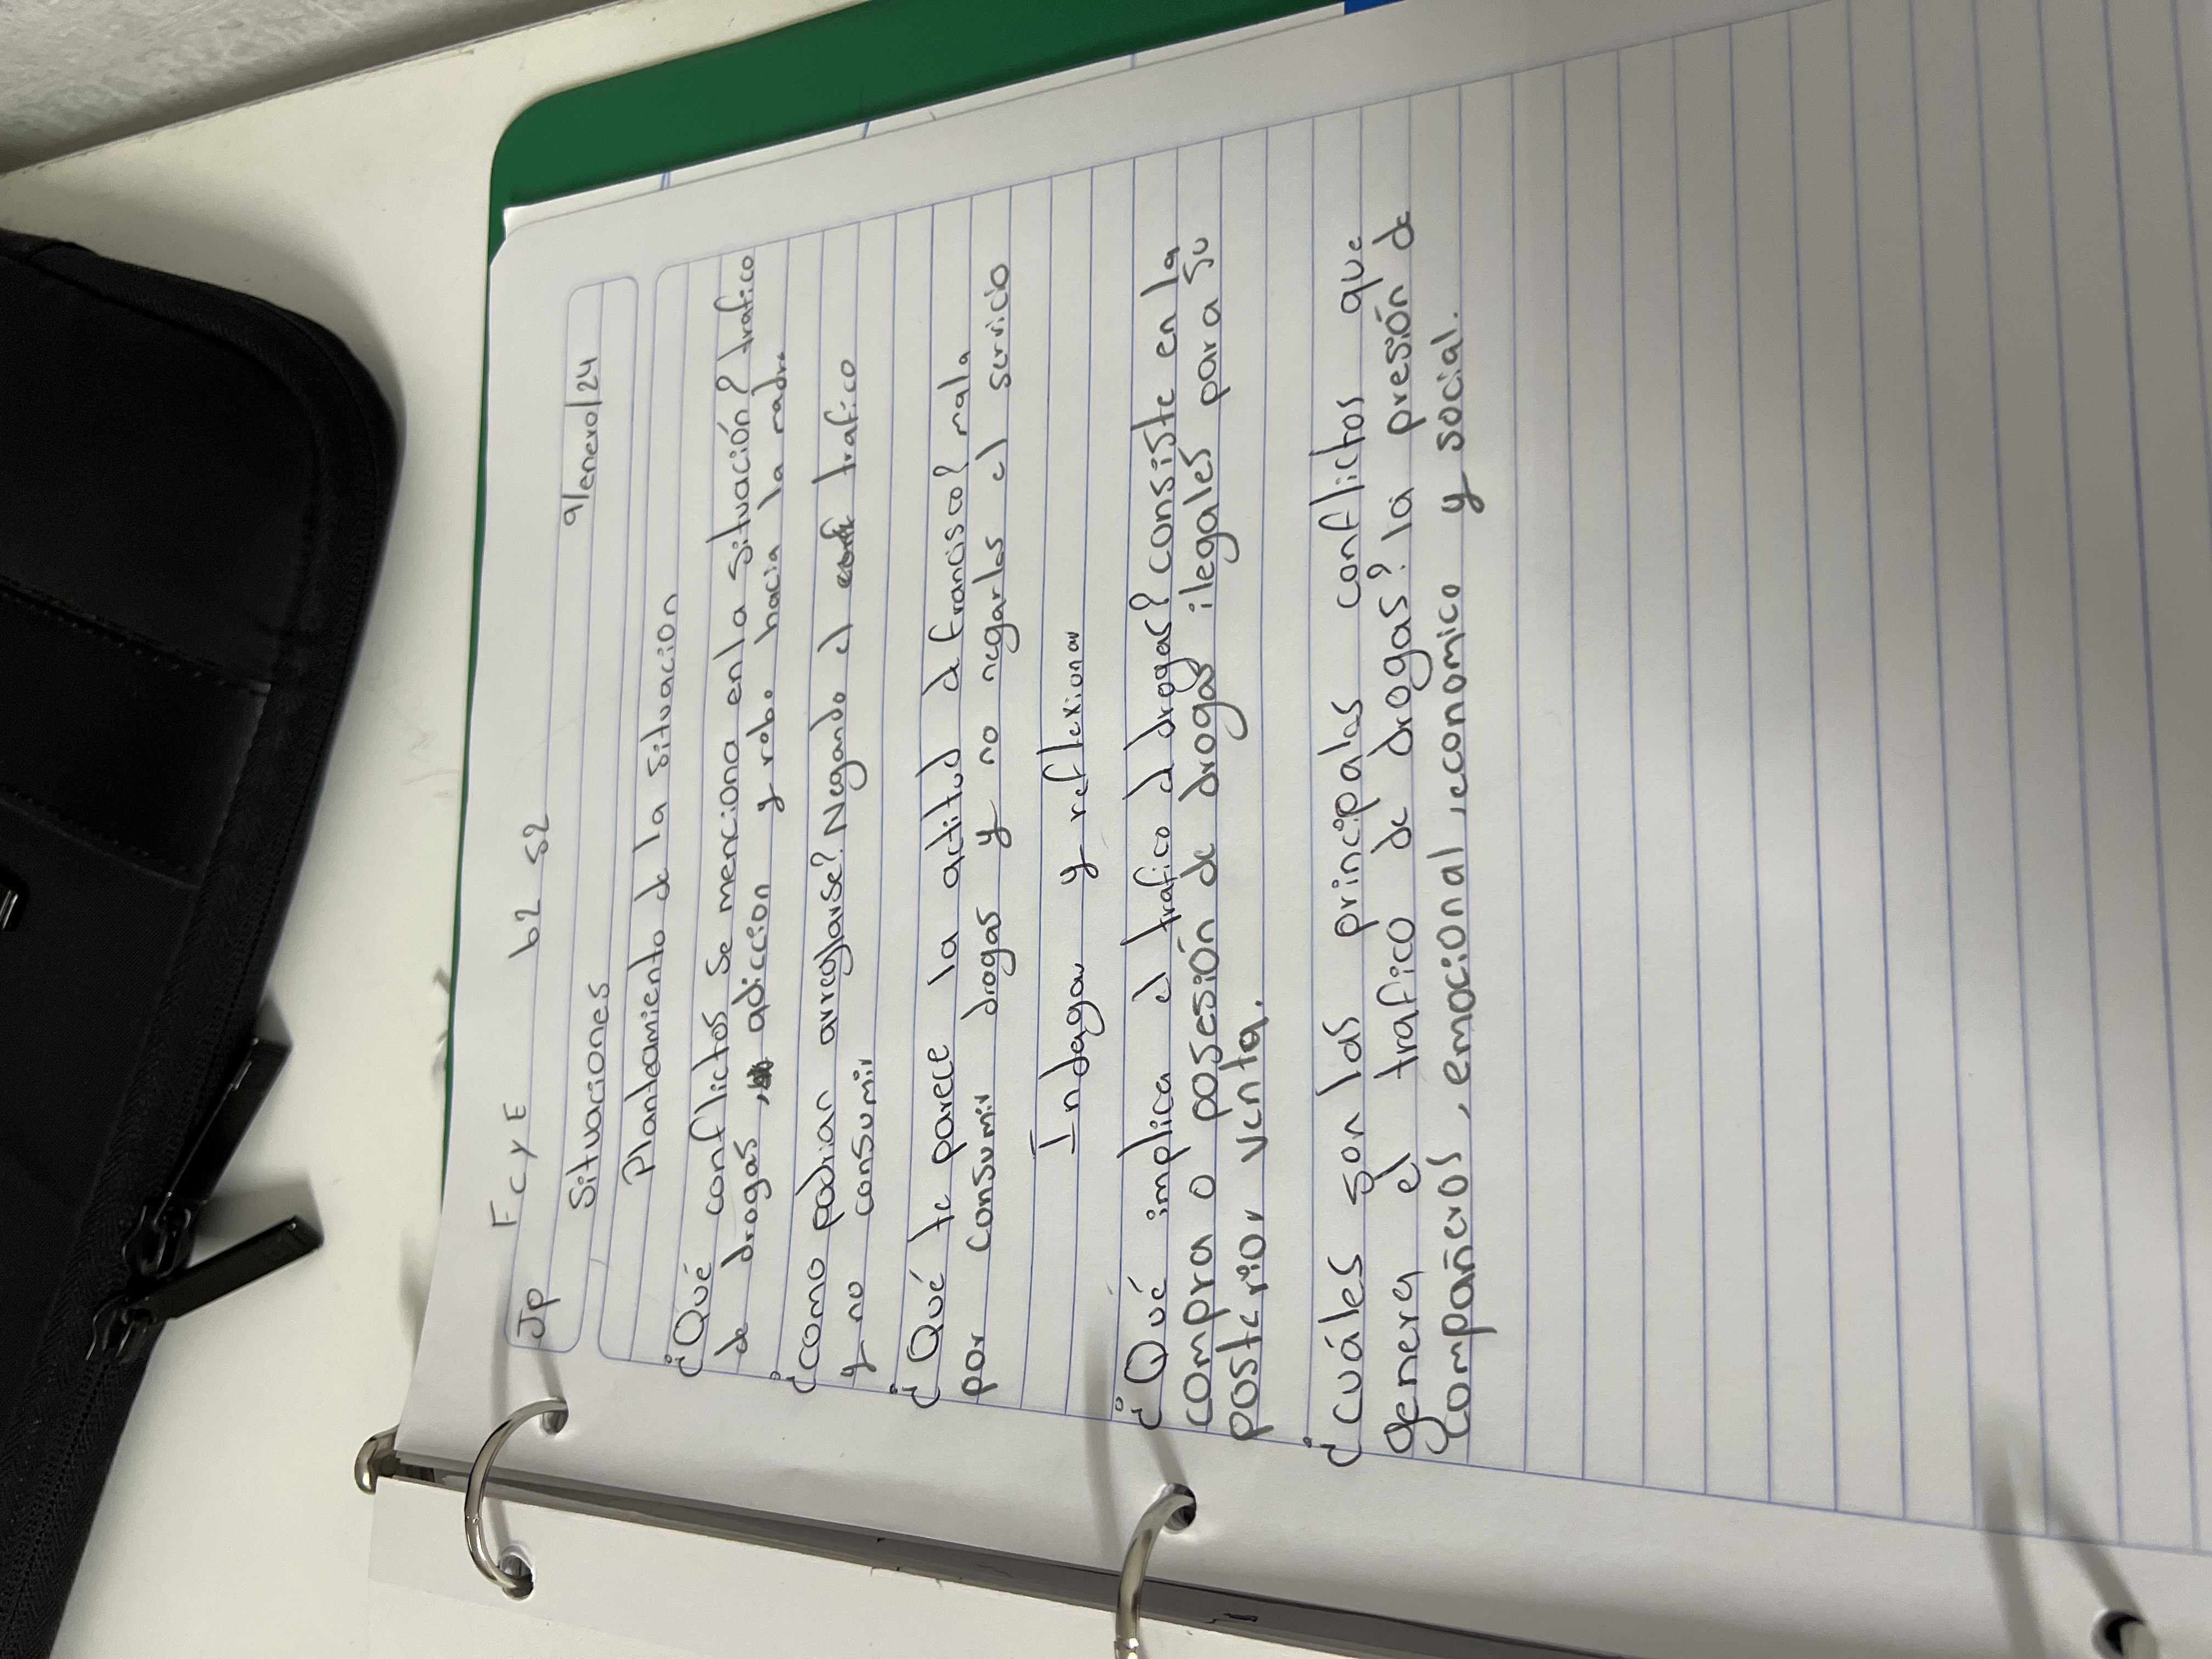 JP FCyE b2 s2
Situaciones 9/enero/24
Planteamiento de la situacion
¿Qué conflictos se menciona en la situación? trafico
de drogas, adiccion y robo hacia la madre
¿como podrian arreglarse? Negando el trafico
y no consumir
¿Qué te parece la actitud de francisco? mala
por consumir drogas y no negarlas el servicio
Indagar y reflexionar
¿Qué implica el trafico d drogas? consiste en la
compra o posesión de drogas ilegales para su
posterior venta.
¿cuáles son las principales conflictos que
genera el trafico de drogas? la presión de
compañeros, emocional, economico y social.